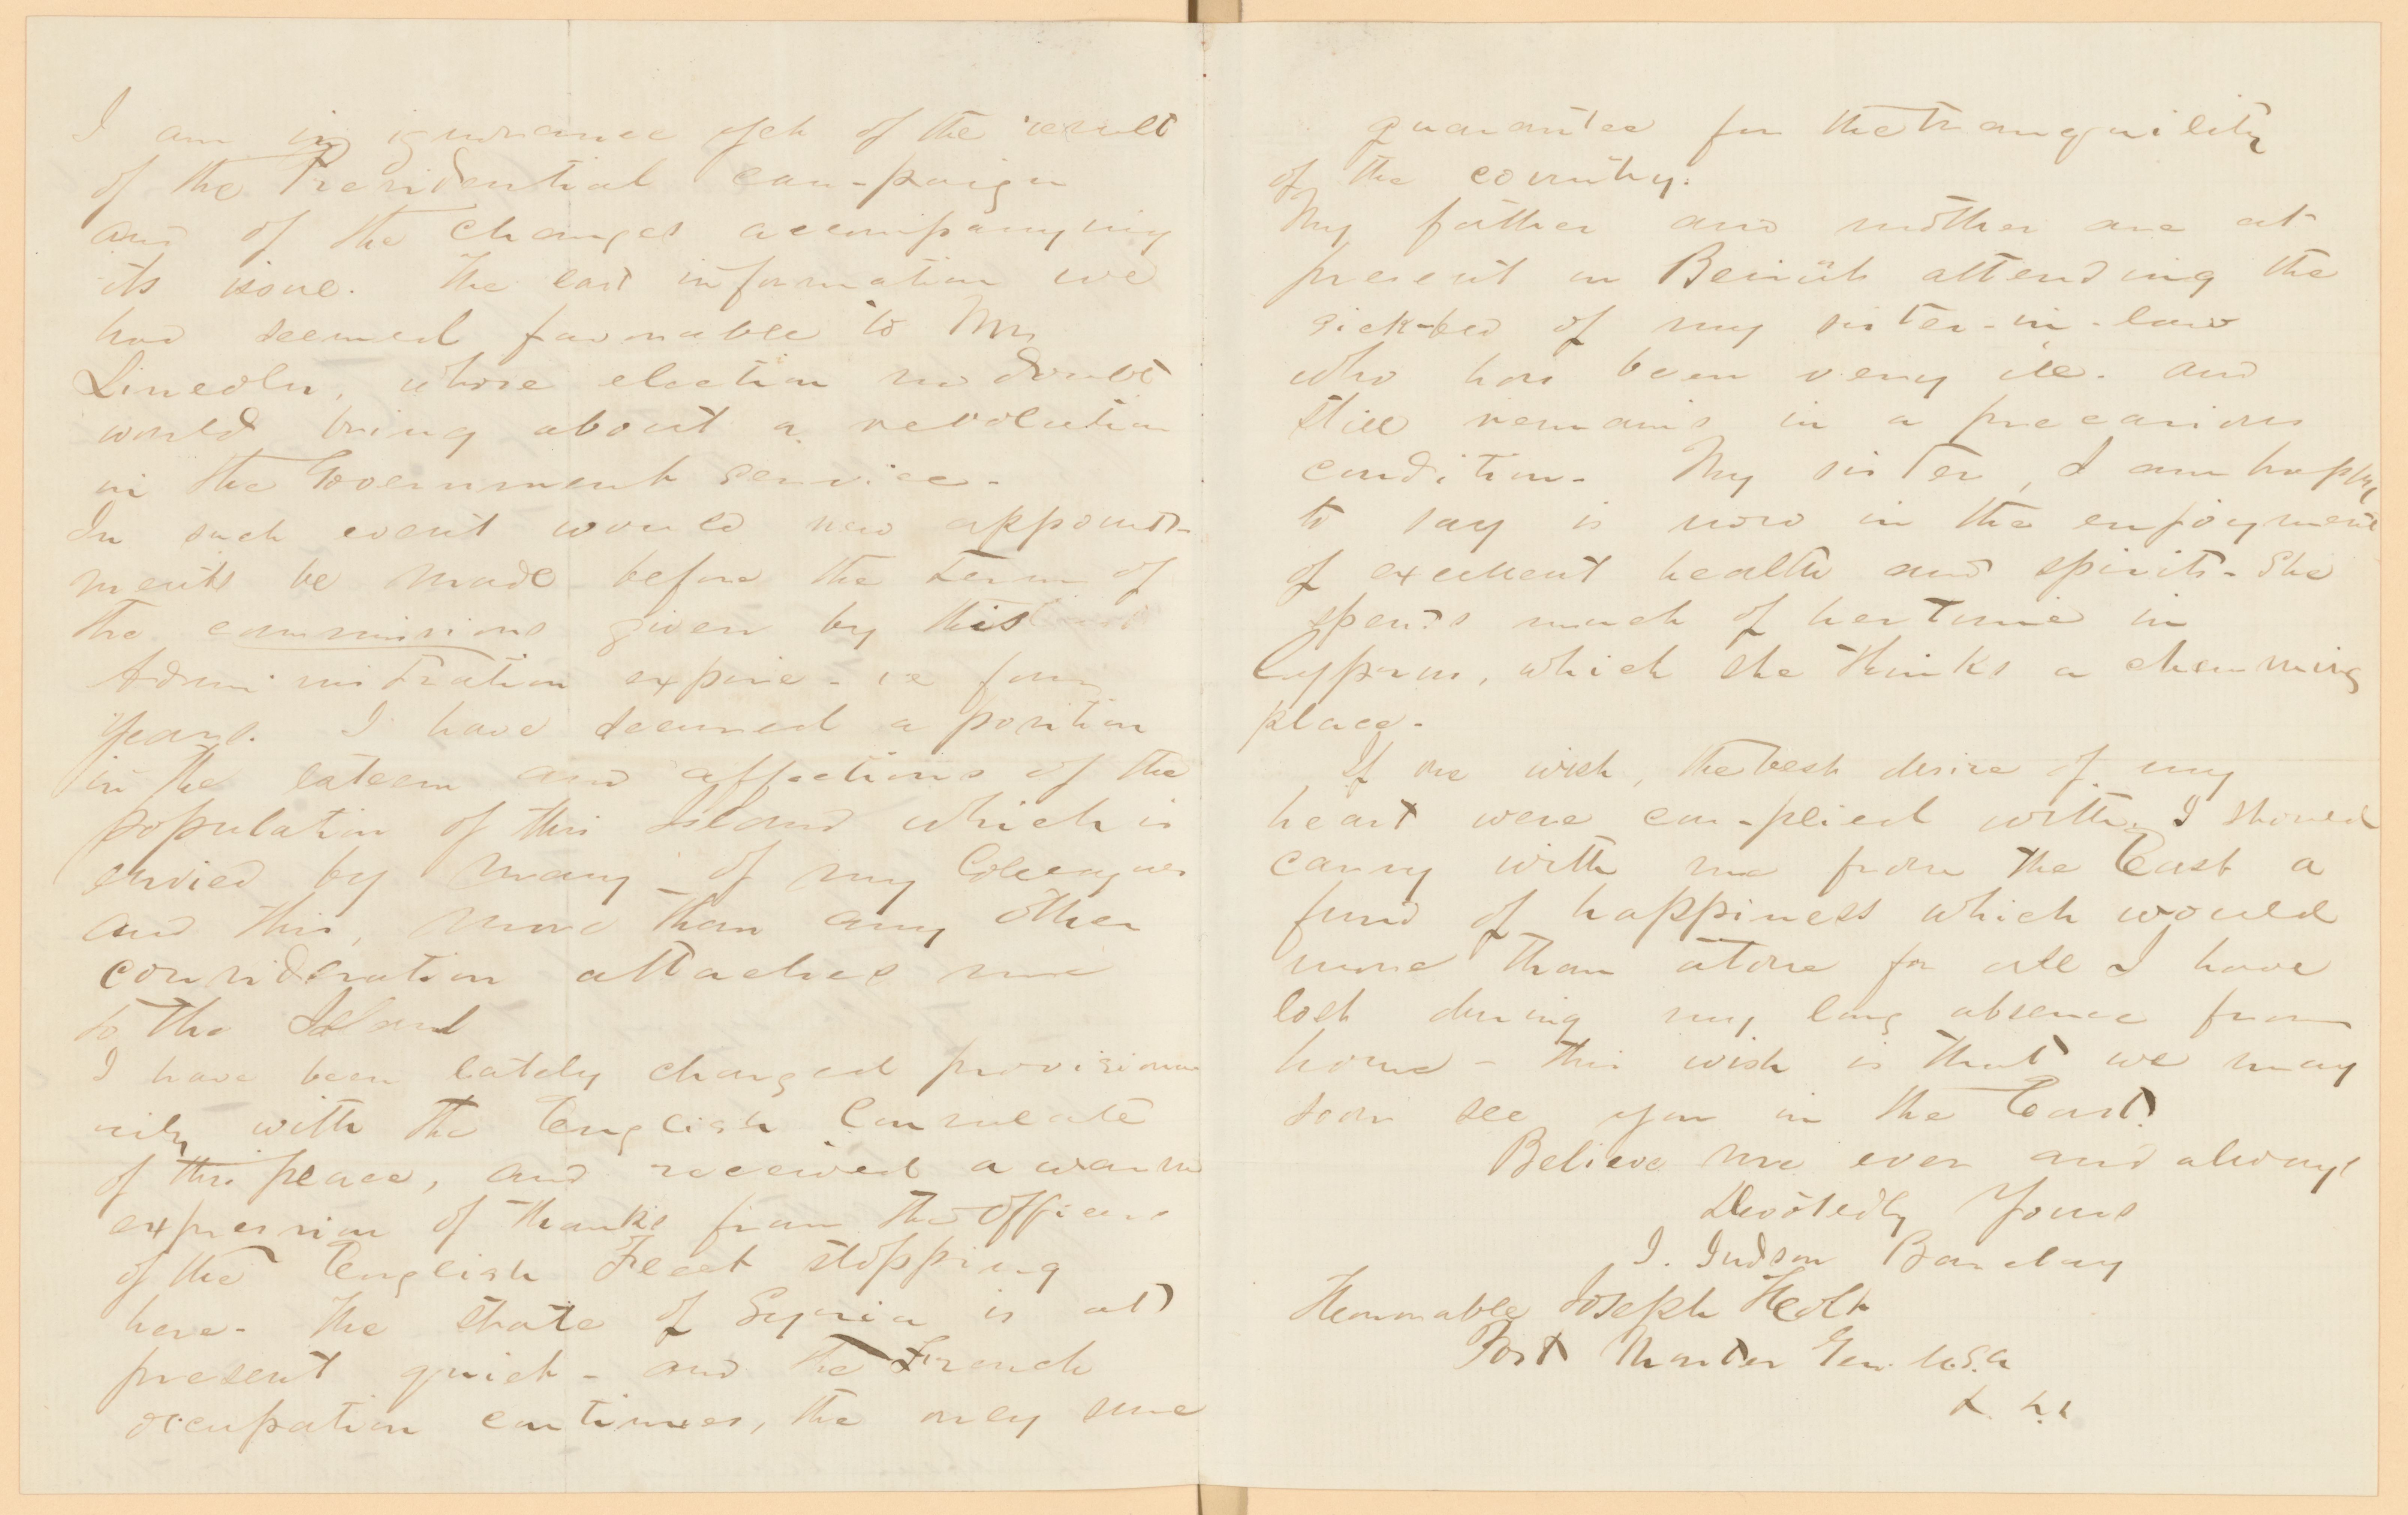 I am in ignorance yet of the result
of the Presidential cam-paign
and of the changes accompanying
its issue. The last information we
had seemed favorable to Mr
Lincoln, whose election no doubt
would bring about a revolution
in the Government service.
In such event would new appoint-
ments be made before the term of
the commissions given by this
Administration expire - ie four
years. I have secured a position
in the esteem and affections of the
population of this Island which is
envied by many of my Colleagues
and this, more than any other
consideration attaches me
to the Island
I have been lately charged provisio
nily with the English Consulate
of this place, and received a warm
expression of thanks from the officers
of the English Fleet stopping
here. The state of Syria is at
present quiet - and the French
occupation continues, the only sure
guarantee for the tranquility
of the country.
My father and mother are at
present in Beirût attending the
sick-bed of my sister-in-law
who has been very ill. and
still remains in a precarious
condition. My sister, I am happy
to say is now in the enjoyment
of excellent health and spirits. She
spends much of her time in
Cyprus, which she thinks a charming
place.
If one wish, the best desire of my
heart were com-plied with, I should
carry with me from the East a
fund of happiness which would
more than atone for all I have
lost during my long absence from
home - this wish is that we may
soon see you in the East.
Believe me ever and always
Devotedly Yours
J. Judson Barclay
Honorable Joseph Holt
Post Master Gen. U.S.A